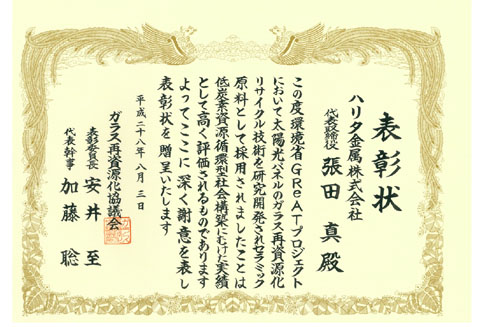 表彰状
ハリタ金属株式会社
代表取締役 張田 真 殿
この度環境省GReATプロジェクト
において太陽光パネルのガラス再資源化
リサイクル技術を研究開発されセラミック
原料として採用されましたことは
低炭素資源循環型社会構築にむけた実績
として高く評価されるものであります
よってここに深く謝意を表し
表彰状を贈呈いたします
平成二十八年八月三日
ガラス再資源化協議会
表彰委員長 安井 至
代表幹事 加藤 聡